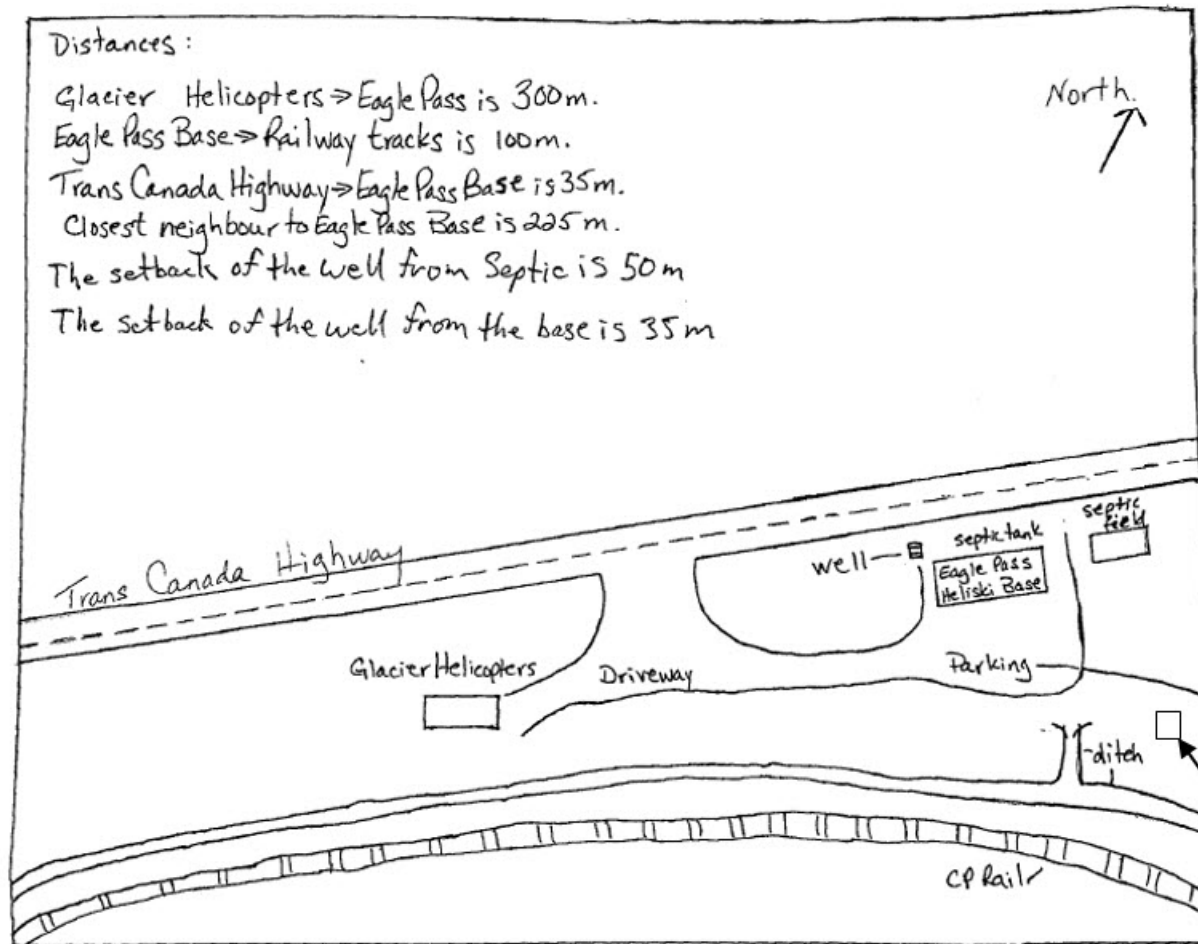 Distances:
Glacier Helicopters⇒Eagle Pass is 300m.
Eagle Pass Base⇒Railway tracks is 100m.
Trans Canada Highway⇒Eagle Pass Base is 35m.
Closest neighbour to Eagle Pass Base is 225 m.
The setback of the well from Septic is 50m
The setback of the well from the base is 35m
North.
Trans Canada Highway
septic field
septic tank
well
Eagle Pass
Heliski Base
Glacier Helicopters
Driveway
Parking
ditch
CP Rail